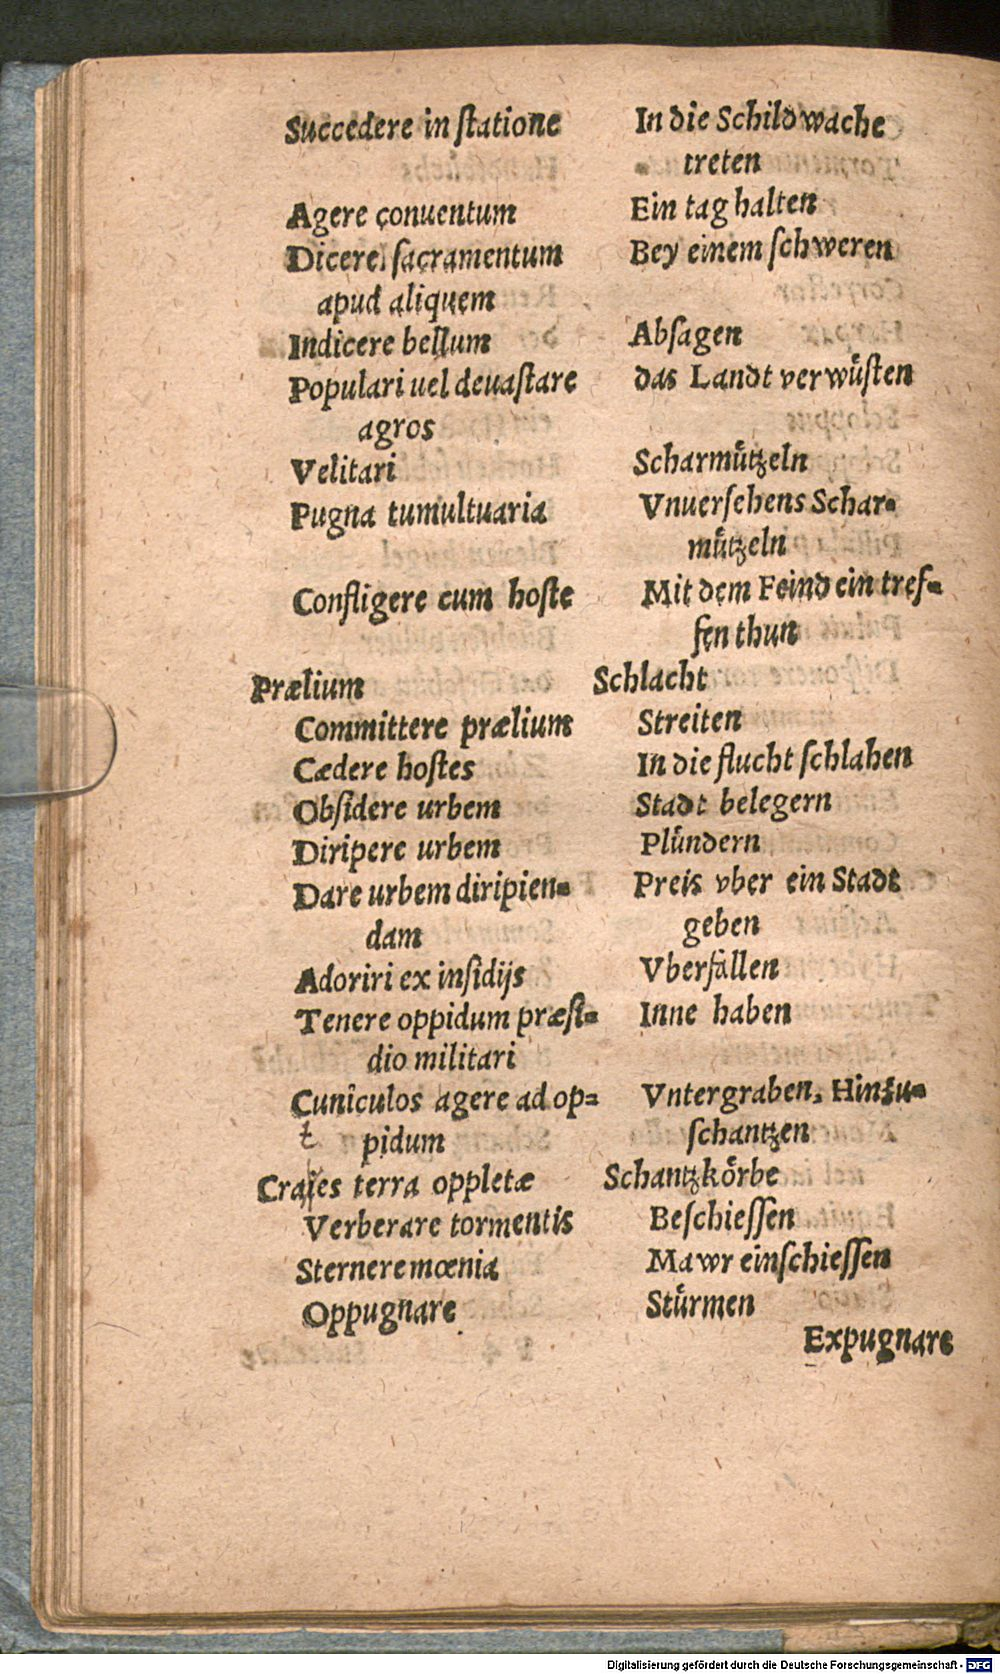 Succedere in ſtatione In die Schildwache
treten
Agere conuentum Ein tag halten
Dicere ſacramentum Bey einem ſchweren
apud aliquem
Indicere bellum Abſagen
Populari uel deuaſtare das Landt verwüſten
agros
Velitari Scharmützeln
Pugna tumultuaria Vnuerſehens Schar-
mützeln
Confligere cum hoſte Mit dem Feind ein tref-
fen thun
Prælium Schlacht
Committere prælium Streiten
Cædere hoſtes In die flucht ſchlahen
Obſidere urbem Stadt belegern
Diripere urbem Plündern
Dare urbem diripien- Preis vber ein Stadt
dam geben
Adoriri ex inſidijs Vberfallen
Tenere oppidum præſi- Inne haben
dio militari
Cuniculos agere ad op- Vntergraben, Hinzu-
t pidum ſchantzen
Craies terra oppletæ Schantzkörbe
Verberare tormentis Beſchieſſen
Sternere mœnia Mawr einſchieſſen
Oppugnare Stürmen
Expugnare
Digitalisierung gefördert durch die Deutsche Forschungsgemeinschaft - DFG